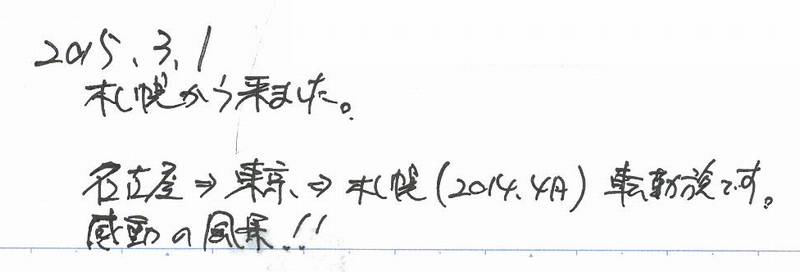 2015.3.1
札幌から来ました。
名古屋⇒東京⇒札幌(2014.4月)転勤族です。
感動の風景!!